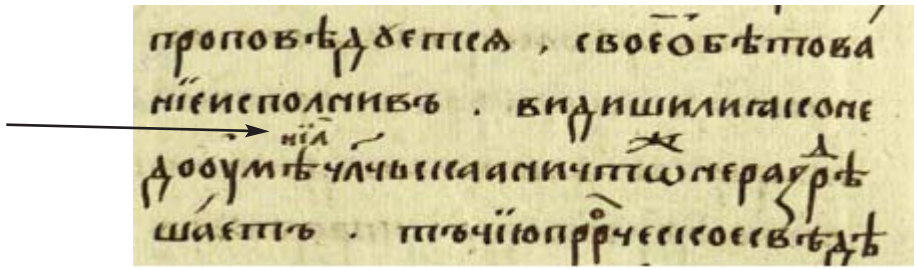 проповѣдꙋетсѧ , своеѻбѣтова
нїеисполнивъ . видишилиꙗконе
нїа
доѹмѣ чл҃чьскааничтѡⷤнеразⷣрѣ
ша́етъ . тъчїюпрⷪ҇рческоесвѣдѣ